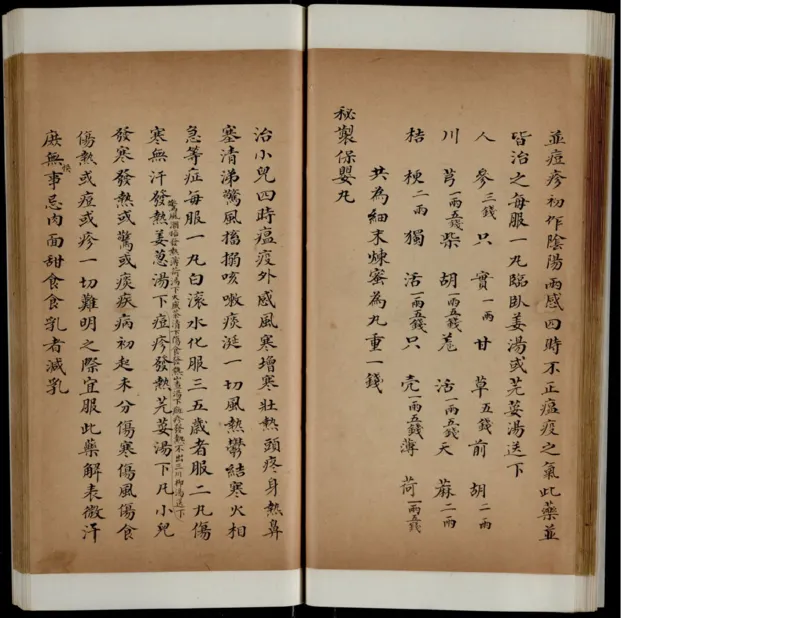 並痘疹初作陰陽兩感四時不正瘟疫之氣此藥並
皆治之每服一丸臨卧姜湯或芫荽湯送下
人參三錢只實一兩甘草五錢前胡二兩
川芎一兩五錢柴胡一兩五錢羌活一兩五錢天蔴二兩
桔梗二兩獨活一兩五錢只壳一兩五錢薄荷一兩五錢
共為細末煉蜜為丸重一錢
秘製保嬰丸
治小兒四時瘟疫外感風寒增寒壯熱頭疼身熱鼻
塞清涕驚風搐搦咳嗽痰涎一切風熱鬱結寒火相
急等症每服一丸白滚水化服三五歲者服二丸傷
驚風潮搐發熱薄荷湯下大
寒無汗發熱姜葱湯下痘疹發熱芫荽湯下凡小兒
發寒發熱或驚或痰疾病初起未分傷寒傷風傷食
傷熱或痘或疹一切難明之際宜服此藥解表微汗
庶無事忌肉面甜食食乳者減乳